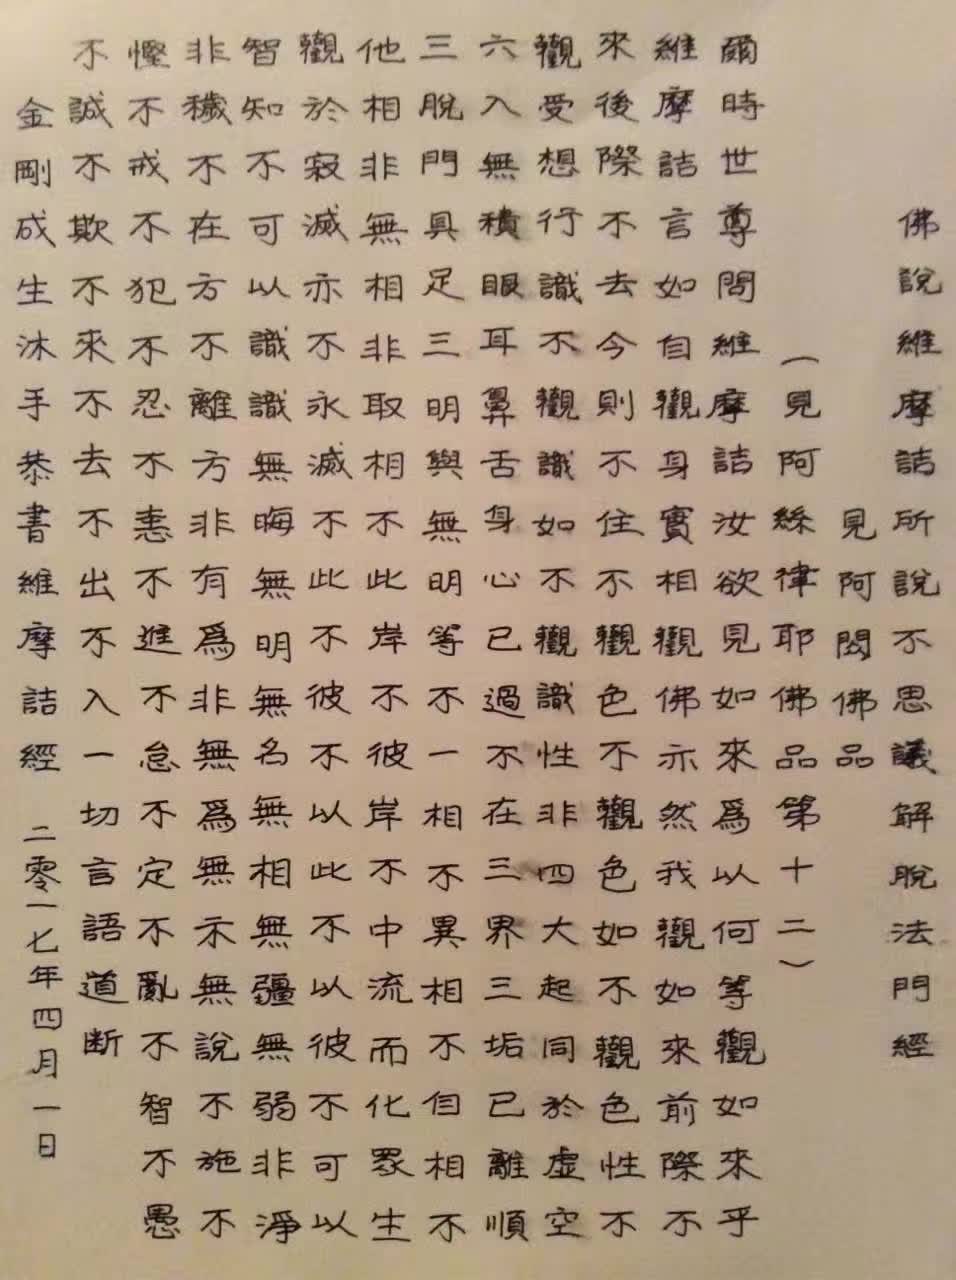 佛說維摩詰所說不思議解脫法門經
見阿閦佛品
（見阿絲律耶佛品第十二）
爾時世尊問維摩詰汝欲見如來為以何等觀如來乎
維摩詰言如自觀身實相觀佛亦然我觀如來前際不
來後際不去今則不住不觀色不觀色如不觀色性不
觀受想行識不觀識如不觀識性非四大起同於虛空
六入無積眼耳鼻舌身心已過不在三界三垢已離順
三脫門具足三明與無明等不一相不異相不自相不
他相非無相非取相不此岸不彼岸不中流而化眾生
觀於寂滅亦不永滅不此不彼不以此不以彼不可以
智知不可以識識無晦無明無名無相無疆無弱非淨
非穢不在方不離方非有為非無為無示無說不施不
慳不戒不犯不忍不恚不進不怠不定不亂不智不愚
不誠不欺不來不去不出不入一切言語道断
金剛成生沐手恭書維摩詰經 二零一七年四月一日